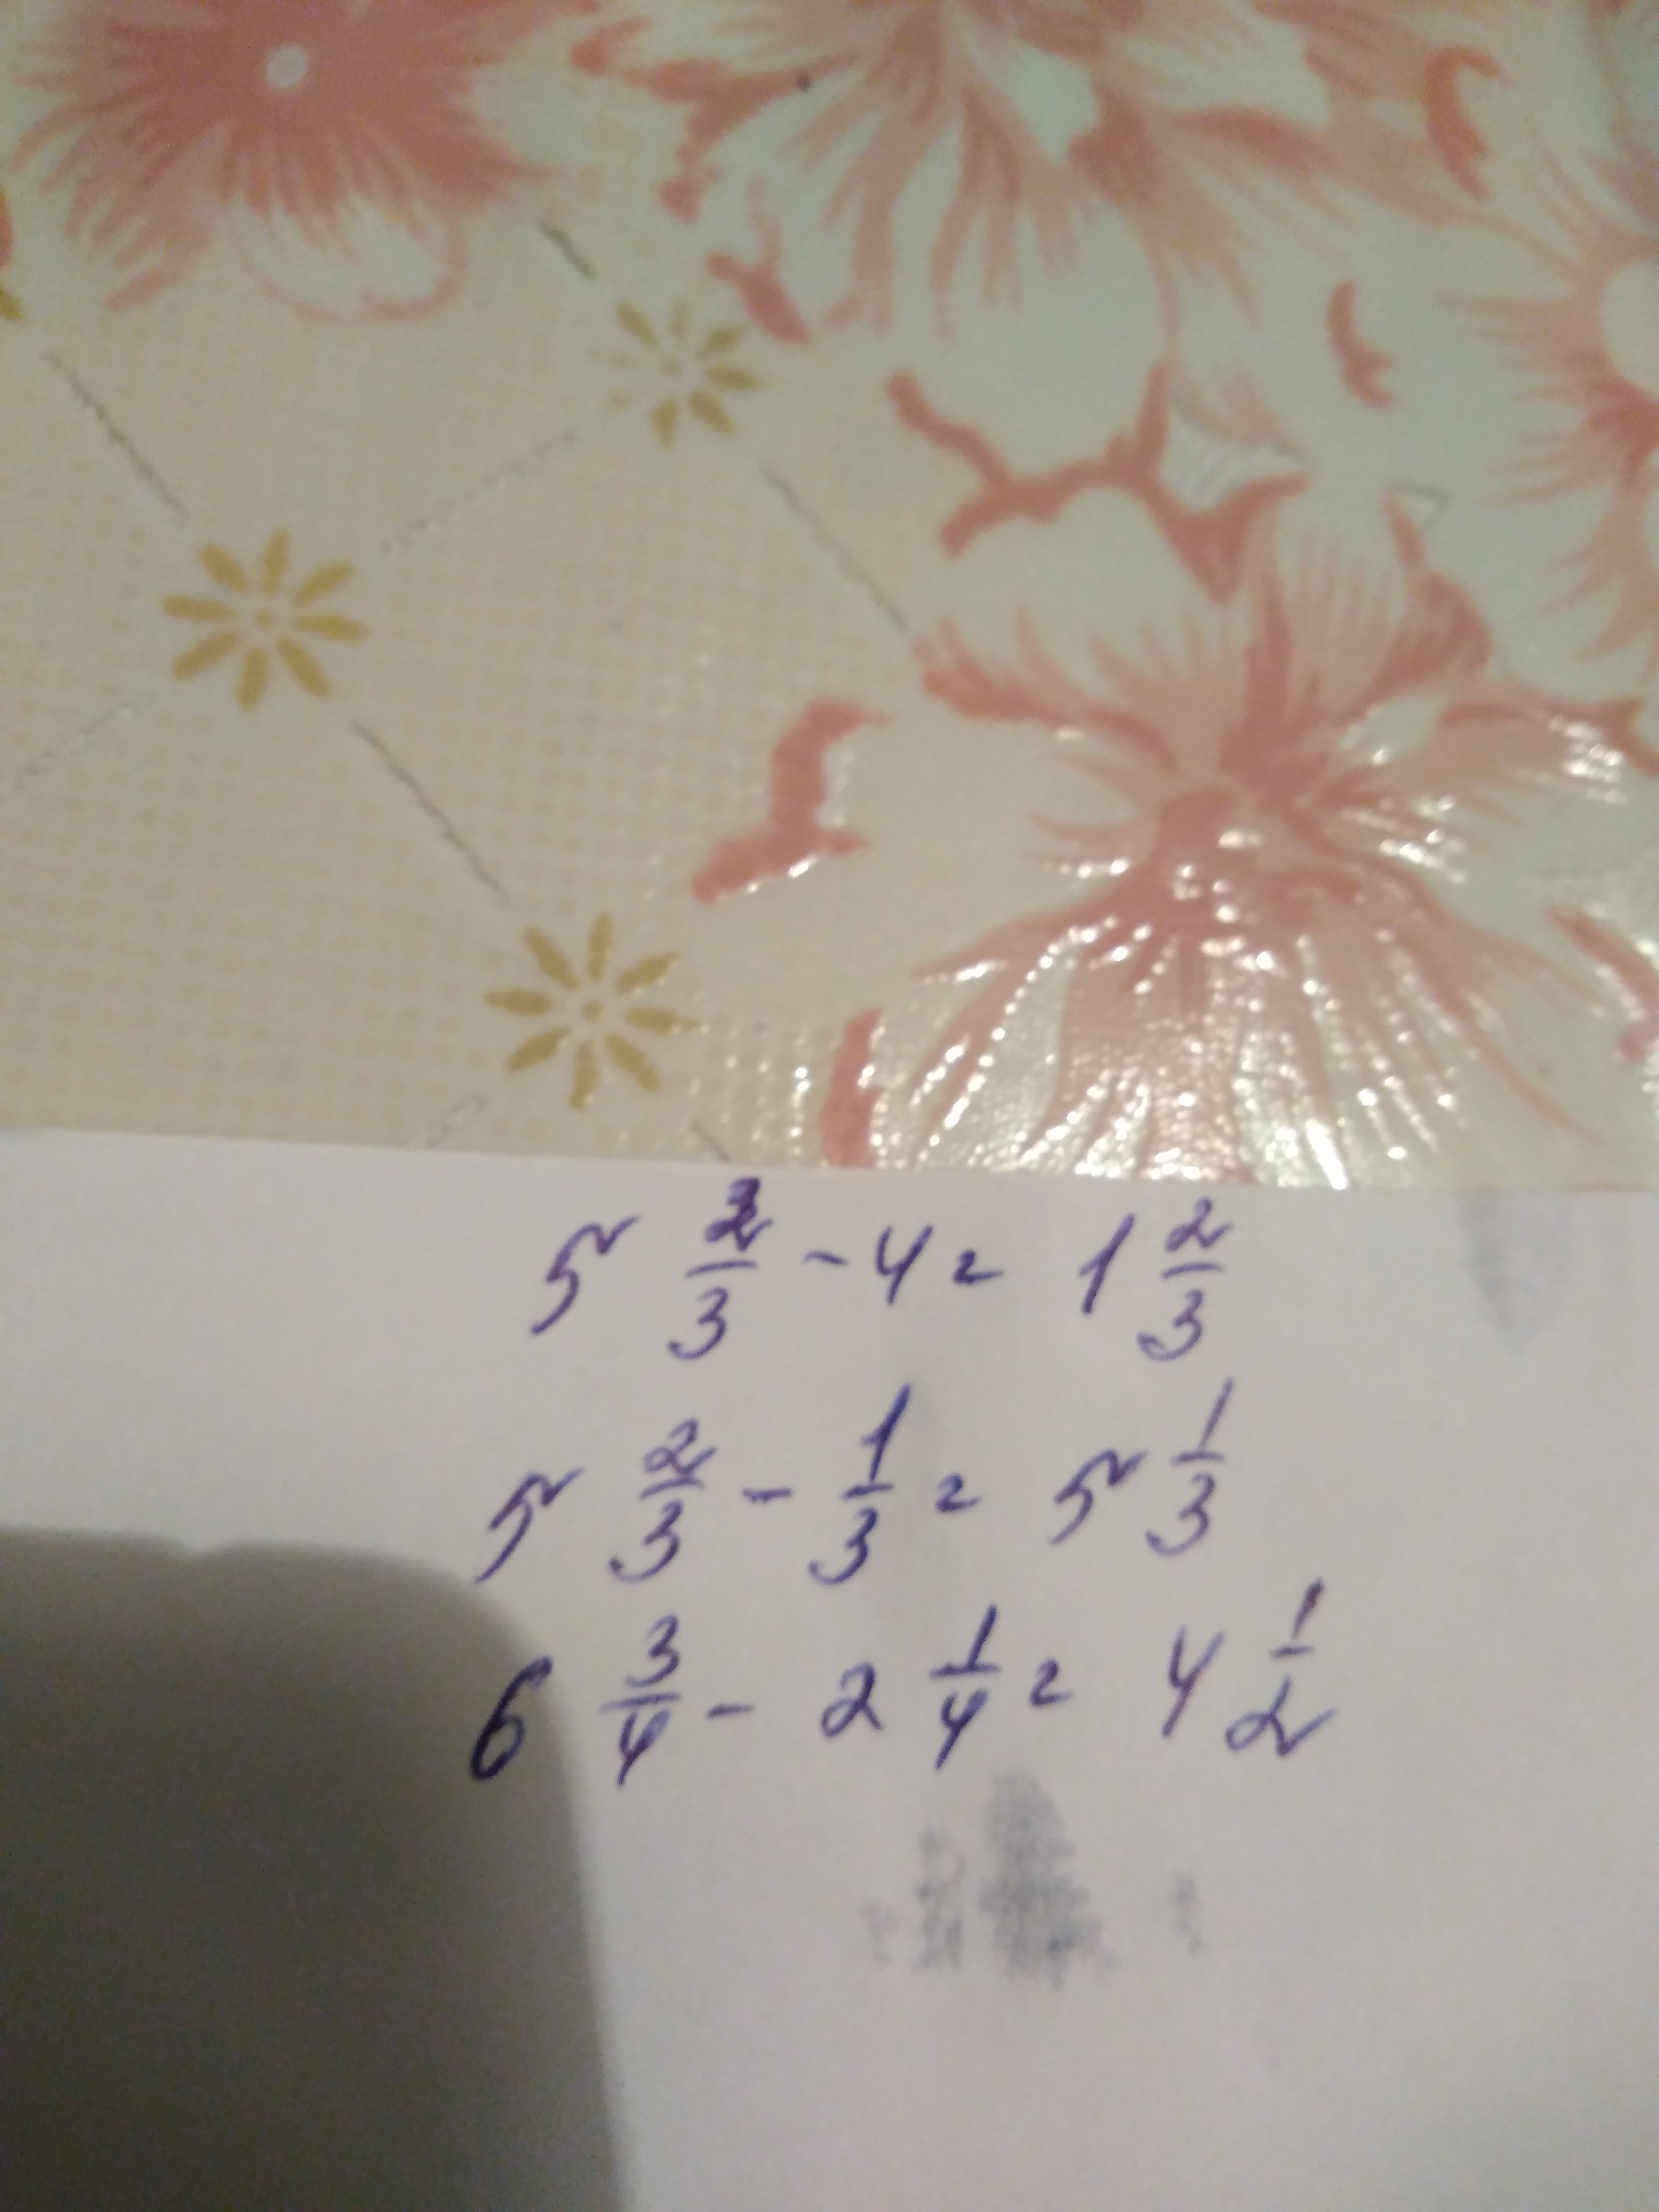 5 2/3 - 4 = 1 2/3
5 2/3 - 1/3 = 5 1/3
6 3/4 - 2 1/4 = 4 1/2